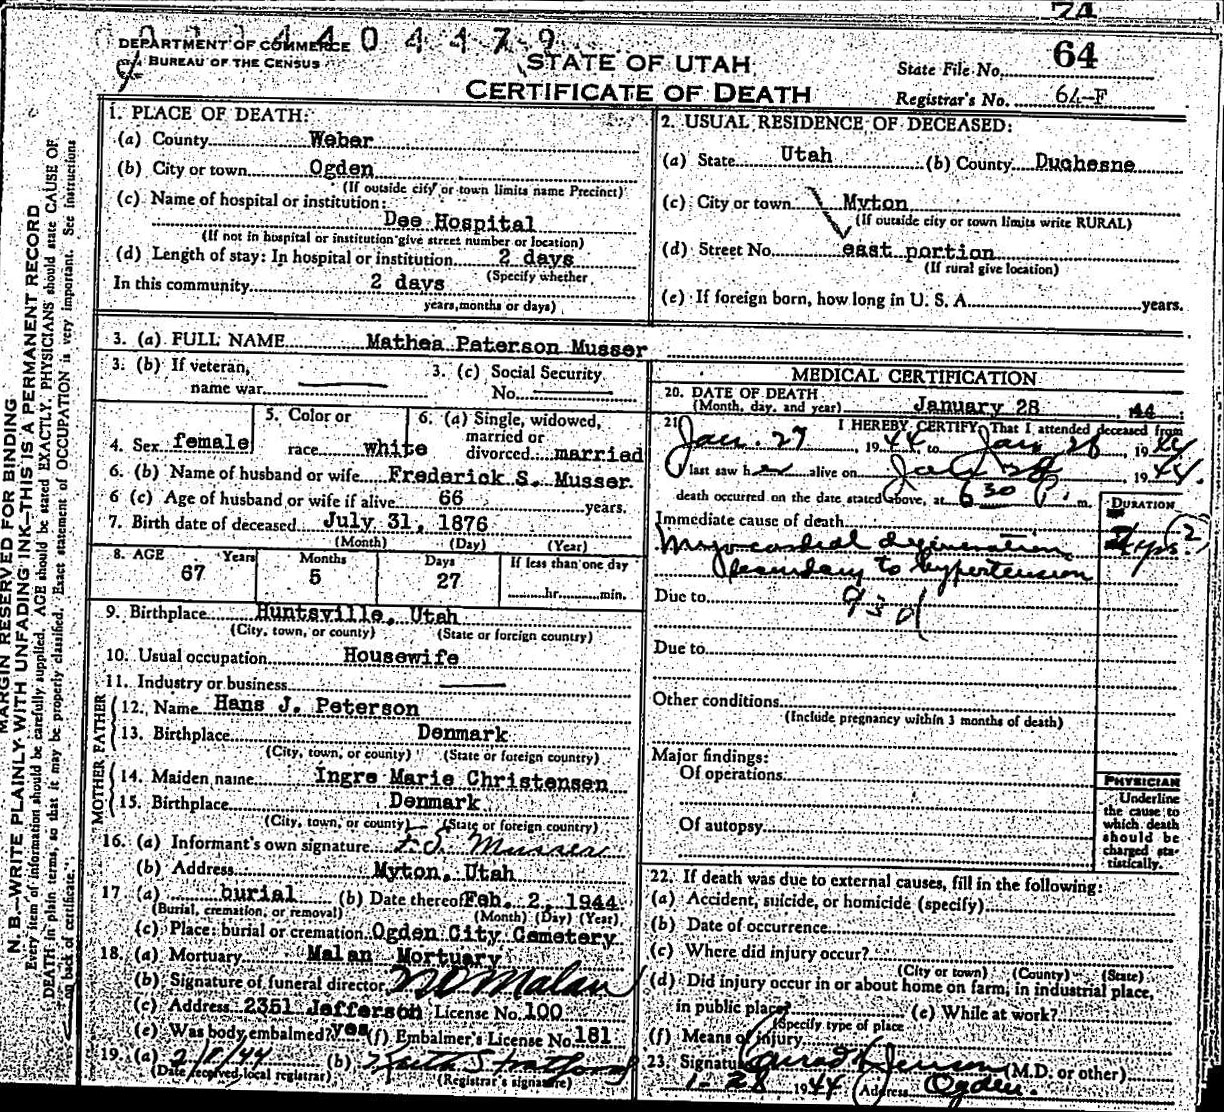 74
0 1 1 4 4 0 4 4 7 9
DEPARTMENT OF COMMERCE
BUREAU OF THE CENSUS
STATE OF UTAH
CERTIFICATE OF DEATH
State File No. 64
Registrar's No. 64-F
MARGIN RESERVED FOR BINDING
N. B.—WRITE PLAINLY WITH UNFADING INK—THIS IS A PERMANENT RECORD
Every item of information should be carefully supplied. AGE should be stated EXACTLY. PHYSICIANS should state CAUSE OF
DEATH in plain terms, so that it may be properly classified. Exact statement of OCCUPATION is very important. See Instructions
on back of certificate.
1. PLACE OF DEATH:
(a) County Weber
(b) City or town Ogden
(If outside city or town limits name Precinct)
(c) Name of hospital or institution:
Dee Hospital
(If not in hospital or institution give street number or location)
(d) Length of stay: In hospital or institution 2 days
(Specify whether
In this community 2 days
years, months or days)
2. USUAL RESIDENCE OF DECEASED:
(a) State Utah (b) County Duchesne
(c) City or town Myton
(If outside city or town limits write RURAL)
(d) Street No. east portion
(If rural give location)
(e) If foreign born, how long in U. S. A. years.
3. (a) FULL NAME Mathea Paterson Musser
3. (b) If veteran,
name war
3. (c) Social Security
No.
4. Sex female
5. Color or
race white
6. (a) Single, widowed,
married or
divorced married
6. (b) Name of husband or wife Frederick S. Musser
6 (c) Age of husband or wife if alive 66 years.
7. Birth date of deceased July 31, 1876
(Month) (Day) (Year)
8. AGE Years Months Days If less than one day
67 5 27 hr. min.
9. Birthplace Huntsville, Utah
(City, town, or county) (State or foreign country)
10. Usual occupation Housewife
11. Industry or business
FATHER
12. Name Hans J. Peterson
13. Birthplace Denmark
(City, town, or county) (State or foreign country)
MOTHER
14. Maiden name Ingre Marie Christensen
15. Birthplace Denmark
(City, town, or county) (State or foreign country)
16. (a) Informant's own signature F. S. Musser
(b) Address Myton, Utah
17 (a) burial (b) Date thereof Feb. 2, 1944
(Burial, cremation, or removal) (Month) (Day) (Year)
(c) Place: burial or cremation Ogden City Cemetery
18. (a) Mortuary Malan Mortuary
(b) Signature of funeral director Malan
(c) Address 2351 Jefferson License No. 100
(e) Was body embalmed? yes (f) Embalmer's License No. 181
19. (a) 2/8/44 (b)
(Date received local registrar) (Registrar's signature)
MEDICAL CERTIFICATION
20. DATE OF DEATH
(Month, day, and year) January 28, 44
21. I HEREBY CERTIFY, That I attended deceased from
Jan. 27, 1944, to Jan 28, 1944
I last saw her alive on Jan 28, 1944.
death occurred on the date stated above, at 6 30 P. m.
DURATION
Immediate cause of death
Myocardial degeneration yrs (2)
secondary to hypertension
Due to 93 d
Due to
Other conditions
(Include pregnancy within 3 months of death)
Major findings:
Of operations
Of autopsy
PHYSICIAN
Underline
the cause to
which death
should be
charged sta-
tistically.
22. If death was due to external causes, fill in the following:
(a) Accident, suicide, or homicide (specify)
(b) Date of occurrence
(c) Where did injury occur?
(City or town) (County) (State)
(d) Did injury occur in or about home on farm, in industrial place,
in public place? (e) While at work?
(Specify type of place
(f) Means of injury
23. Signature Conrad H Jenson (M.D. or other)
1-28 1944 (Address Ogden.